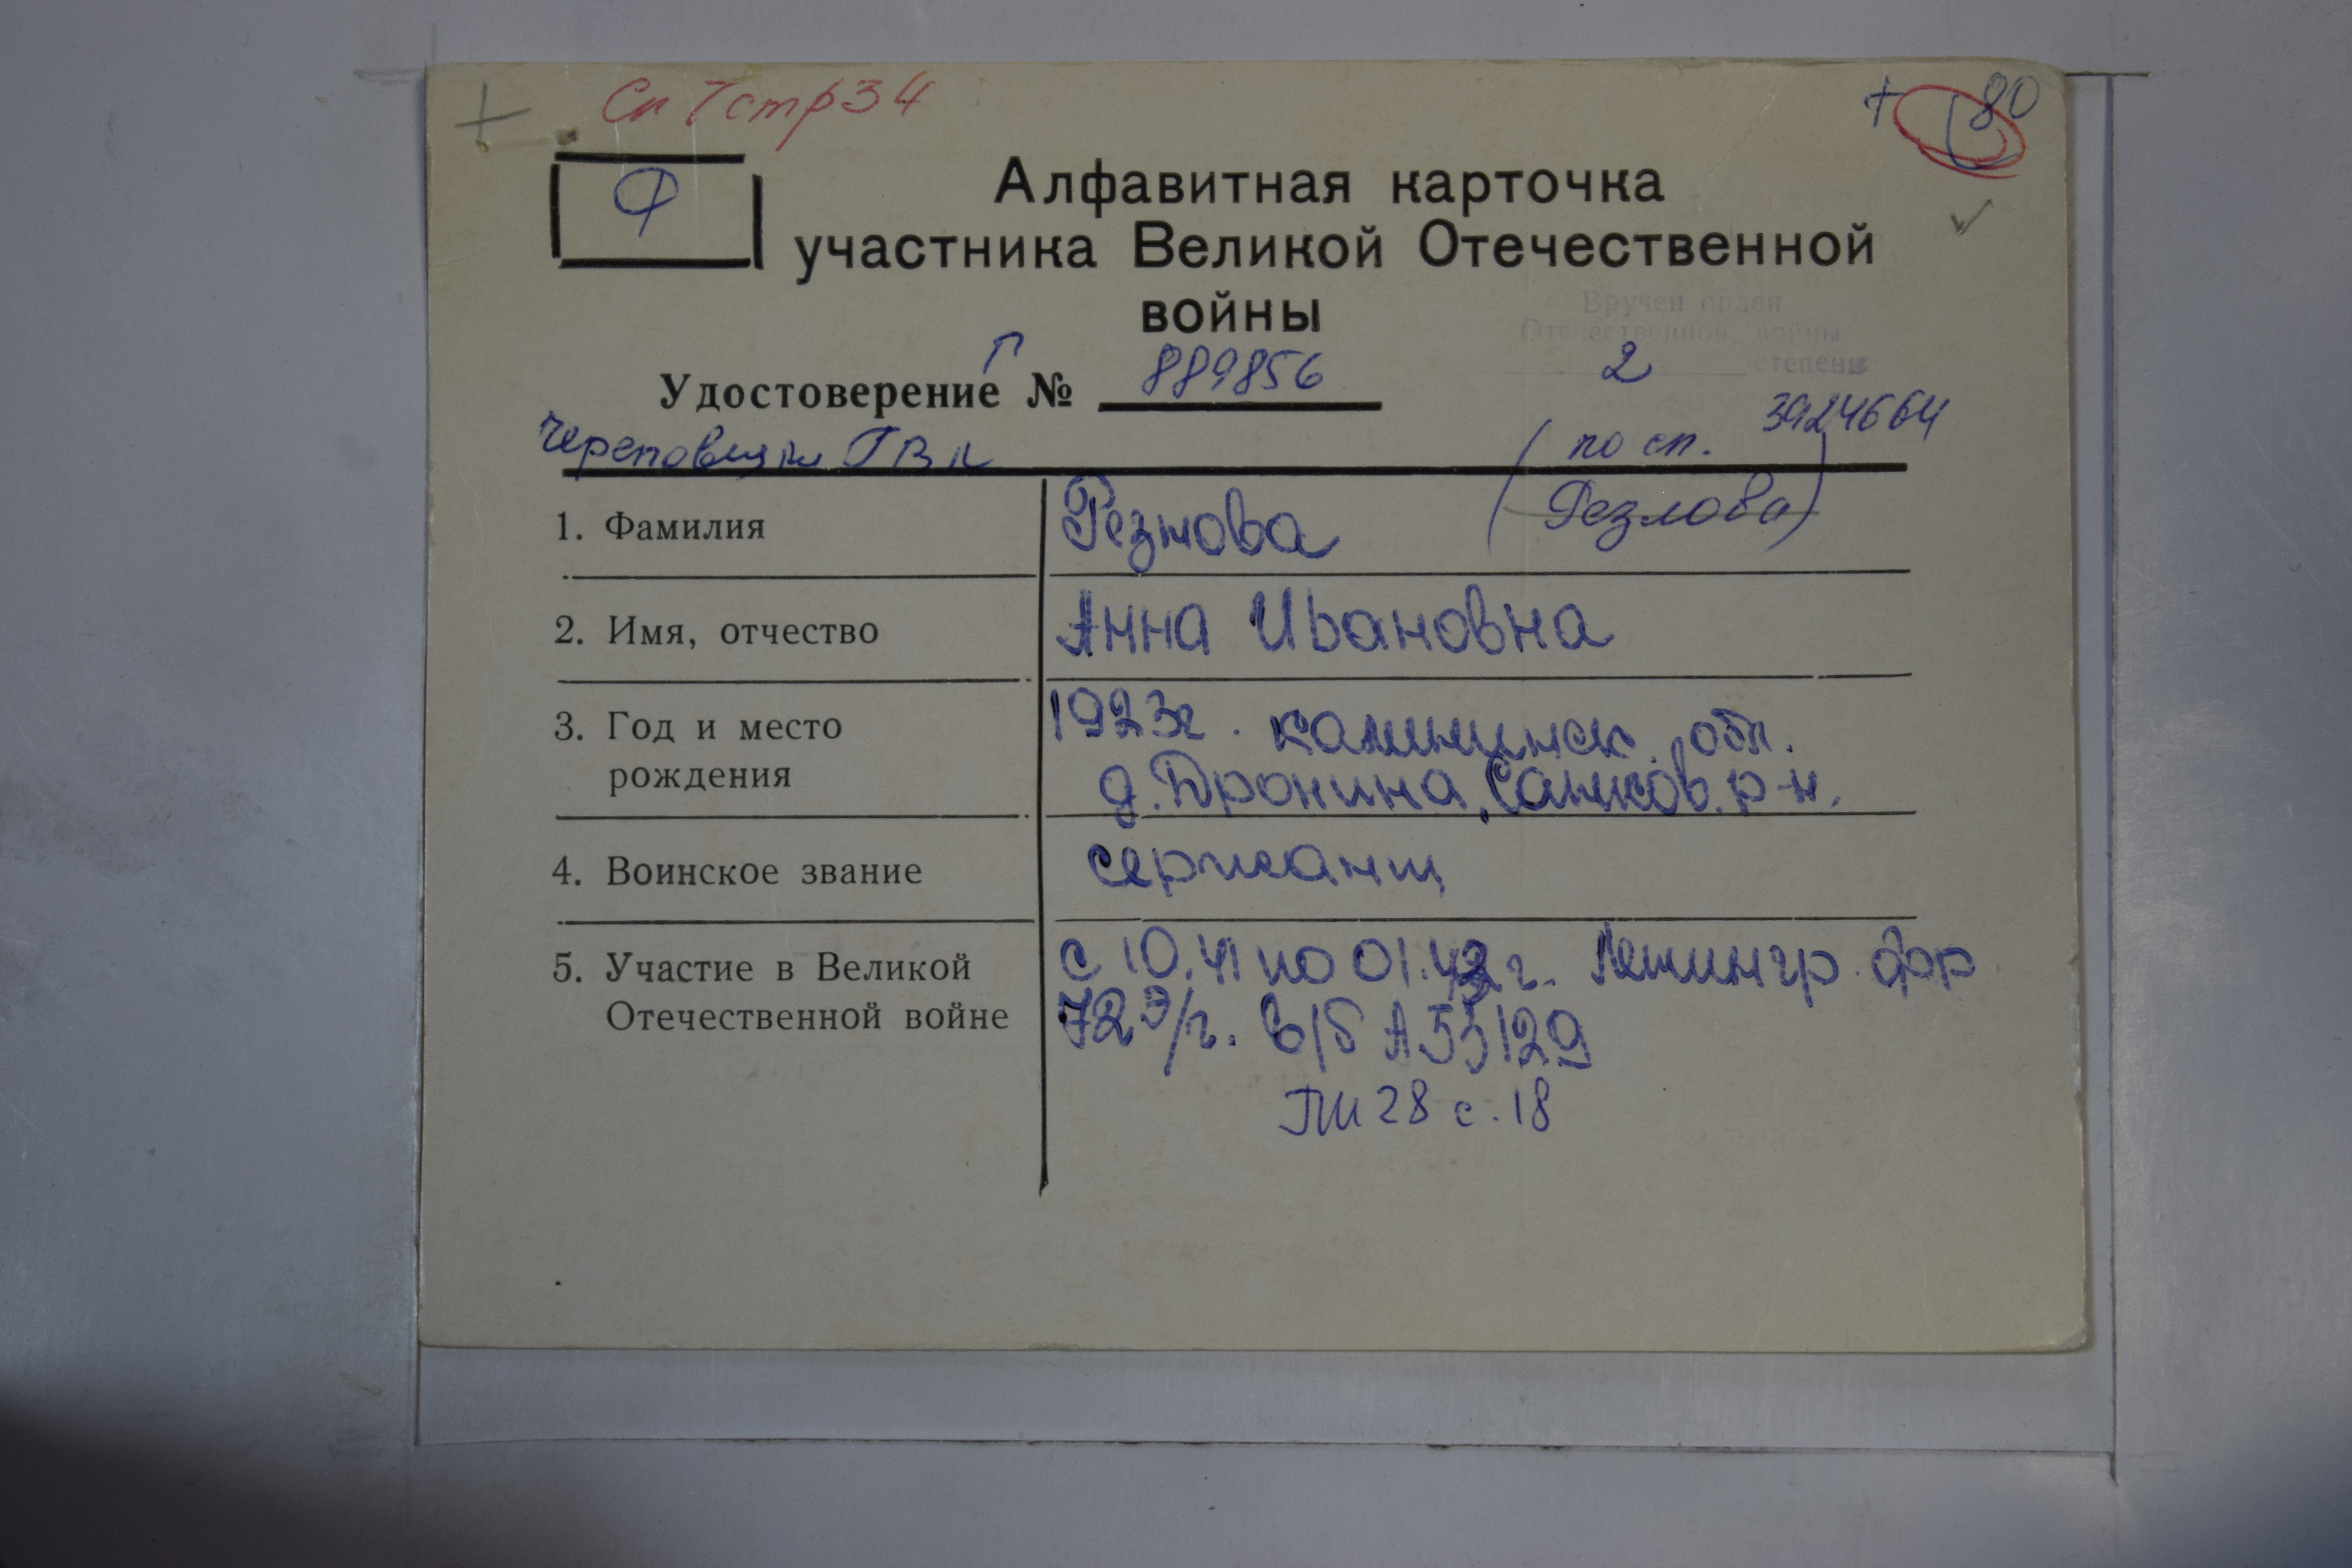 Сп 7 стр 34
+ 80
Ф
Алфавитная карточка
участника Великой Отечественной
войны
Вручен орден
Отечественной войны
2 степени
Г
Удостоверение № 889856
3924664
Череповецк ГВК
(по сп.
Резлова)
1. Фамилия Резнова
2. Имя, отчество Анна Ивановна
3. Год и место рождения 1923г. Калининск. обл.
д. Дронина, Сонков. р-н.
4. Воинское звание сержант
5. Участие в Великой Отечественной войне с 10.41 по 01.42 г. Ленингр. фр
72 э/г. в/б А 55129
ПП 28 с. 18